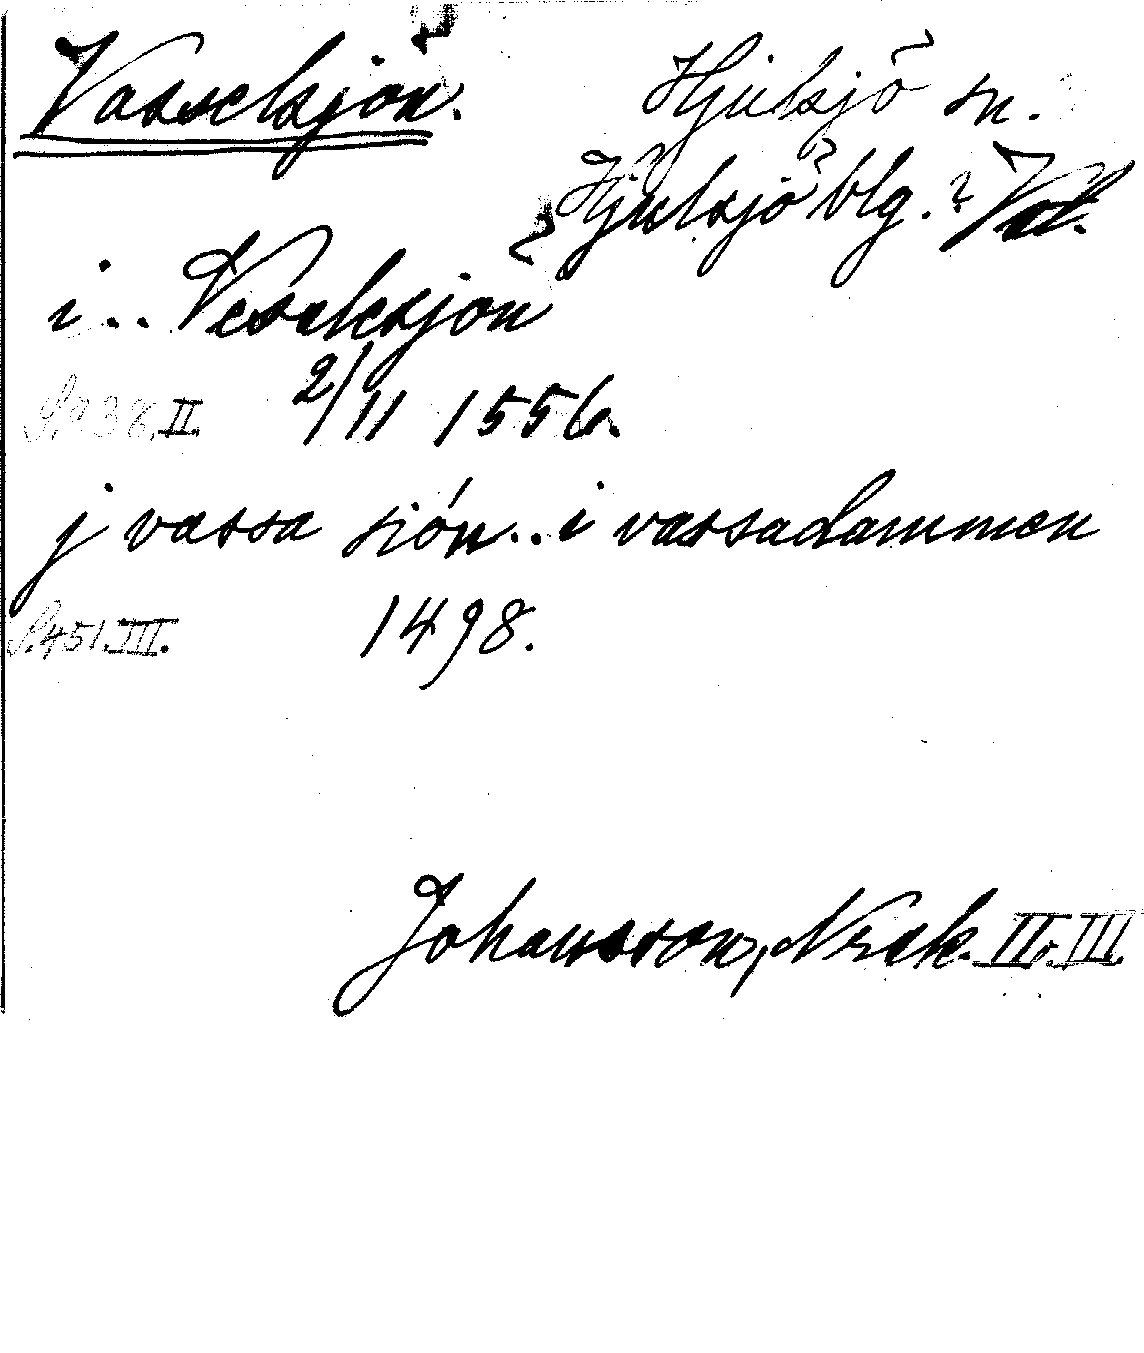 Vasselsjön. Hjulsjö sn.
Hjulsjö blg.? Vat.
i.. Vesalesjön
S. 938. II. 2/11 1556.
j vassa sión.. i vassadammen
S. 451. III. 1498.
Johansson, Noralk. II. III.